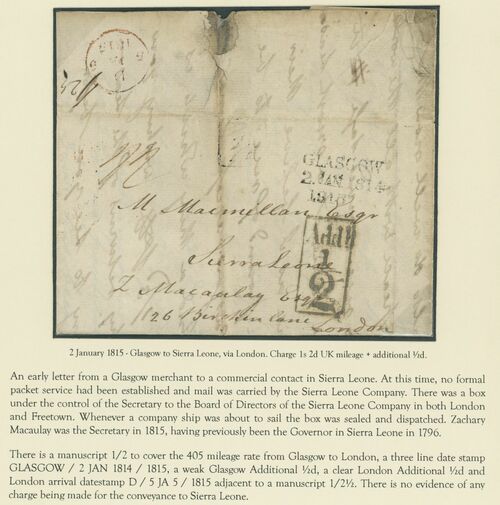 GLASGOW
2 JAN 1814
1815
M Macmillan Esqr
Addl
1
2
Sierra Leone
Z Macaulay Esqr
26 Birchin lane
London
2 January 1815 - Glasgow to Sierra Leone, via London. Charge 1s 2d UK mileage + additional ½d.
An early letter from a Glasgow merchant to a commercial contact in Sierra Leone. At this time, no formal
packet service had been established and mail was carried by the Sierra Leone Company. There was a box
under the control of the Secretary to the Board of Directors of the Sierra Leone Company in both London
and Freetown. Whenever a company ship was about to sail the box was sealed and dispatched. Zachary
Macaulay was the Secretary in 1815, having previously been the Governor in Sierra Leone in 1796.
There is a manuscript 1/2 to cover the 405 mileage rate from Glasgow to London, a three line date stamp
GLASGOW / 2 JAN 1814 / 1815, a weak Glasgow Additional ½d, a clear London Additional ½d and
London arrival datestamp D / 5 JA 5 / 1815 adjacent to a manuscript 1/2½. There is no evidence of any
charge being made for the conveyance to Sierra Leone.